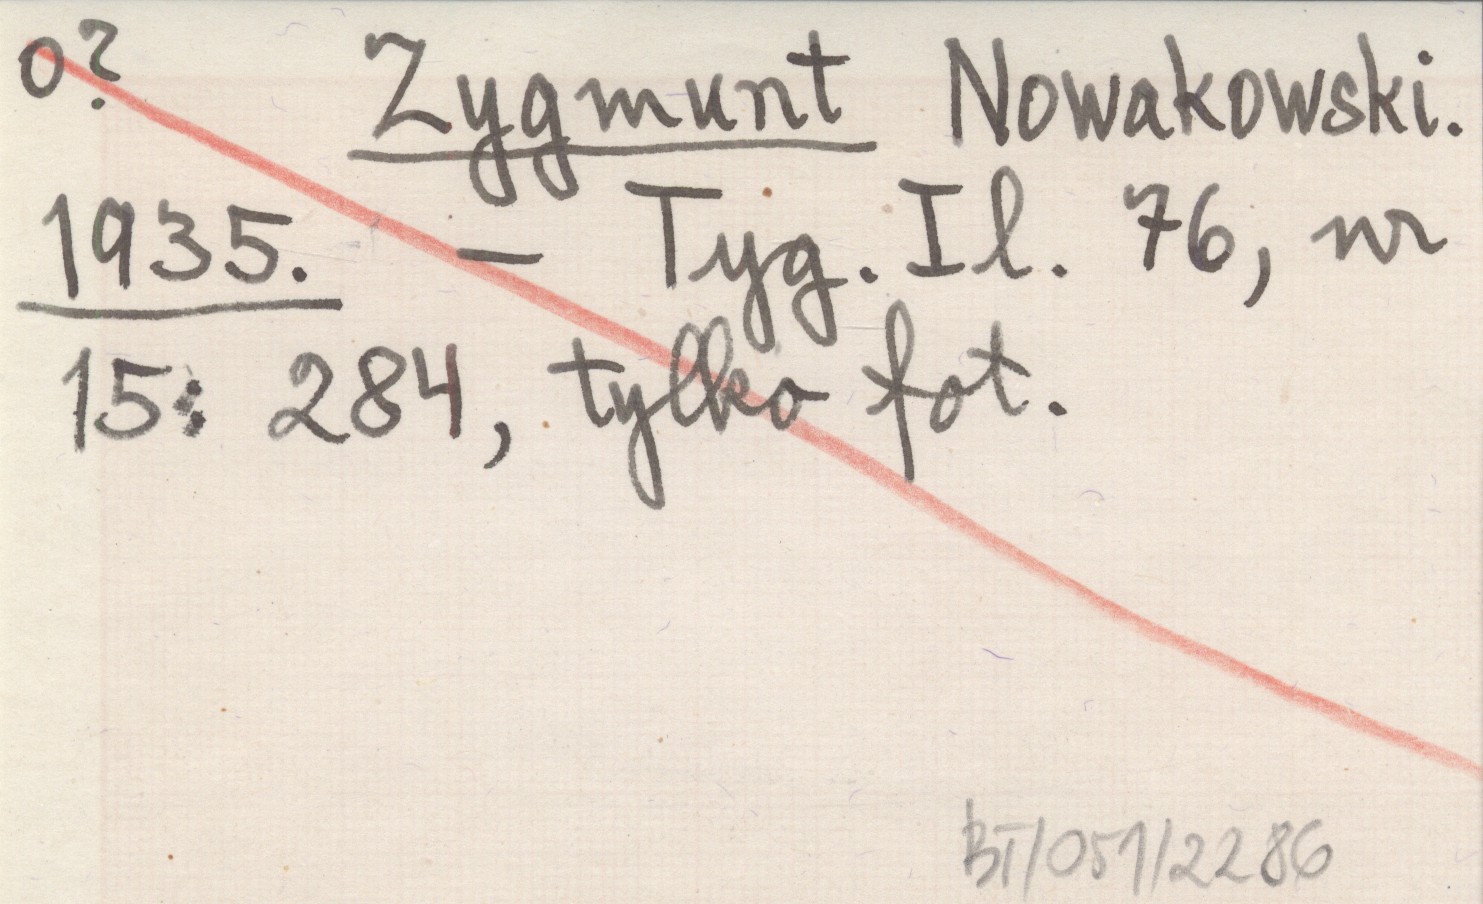 o? Zygmunt Nowakowski.
1935. — Tyg. Il. 76, nr
15: 284, tylko fot.
BT/051/2286